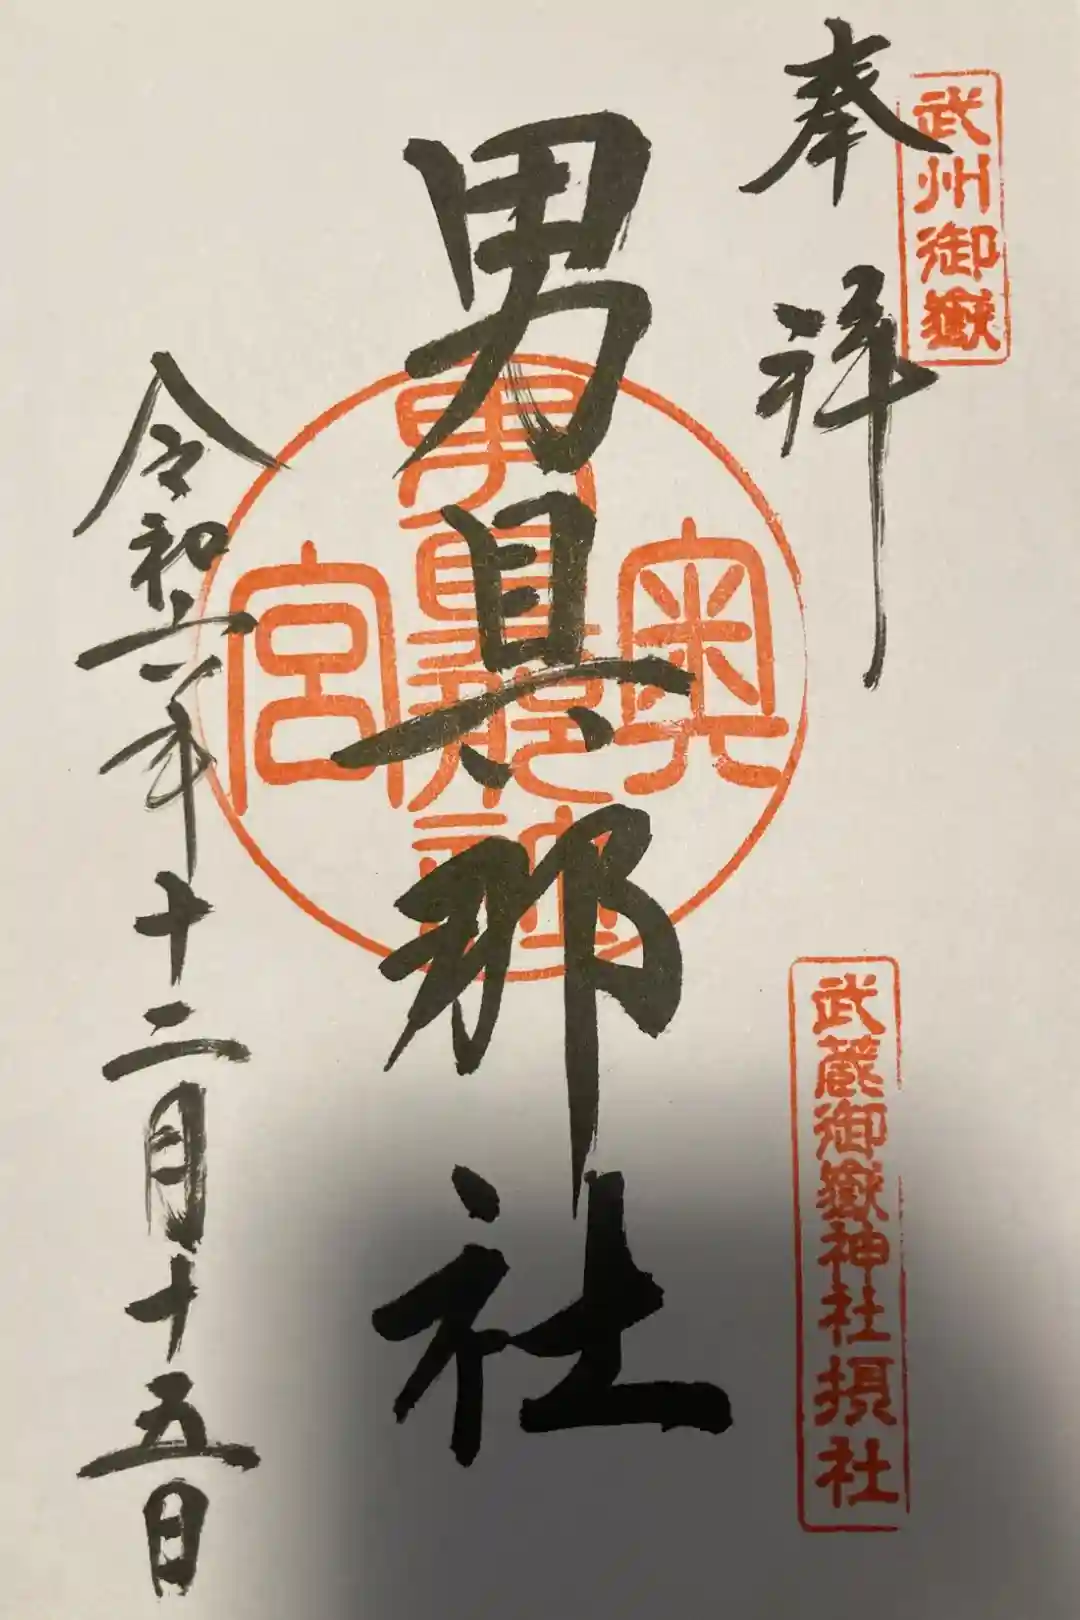 武州御嶽
奉拝
武蔵御嶽神社摂社
男具那社
奥
男具那社
宮
令和六年十二月十五日